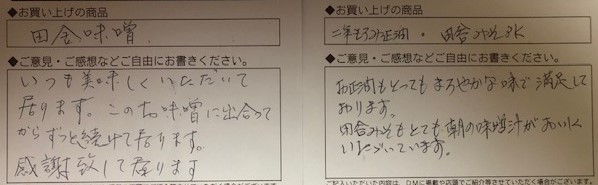 ◆お買い上げの商品
田舎味噌
◆ご意見・ご感想などご自由にお書きください。
いつも美味しくいただいて
居ります。このお味噌に出合って
からずっと続けて居ります。
感謝致して居ります
◆お買い上げの商品
二年もろみ正油・田舎みそ3K
◆ご意見・ご感想などご自由にお書きください。
お正油もとってもまろやかな味で満足して
おります。
田舎みそもとても朝の味噌汁がおいしく
いただいています。
ご記入いただいた内容は、DMに掲載や店頭でご紹介等させていただく場合がございます。